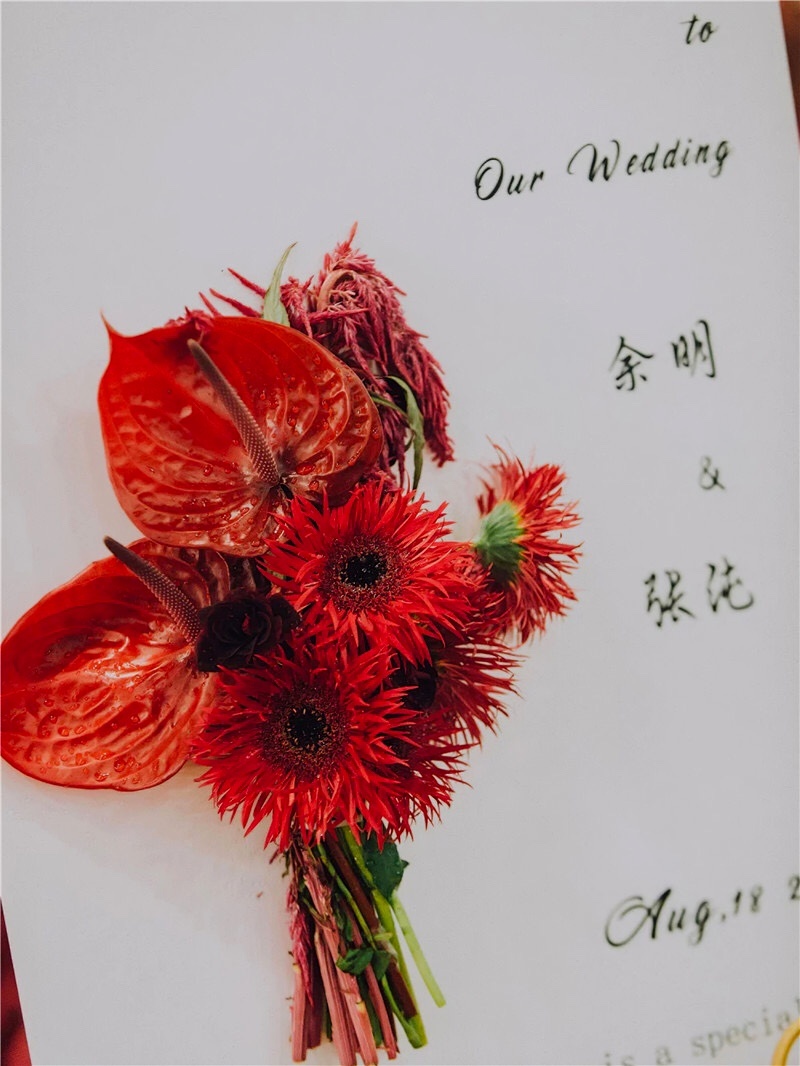 to
Our Wedding
余明
&
张沌
Aug,18 2
is a special